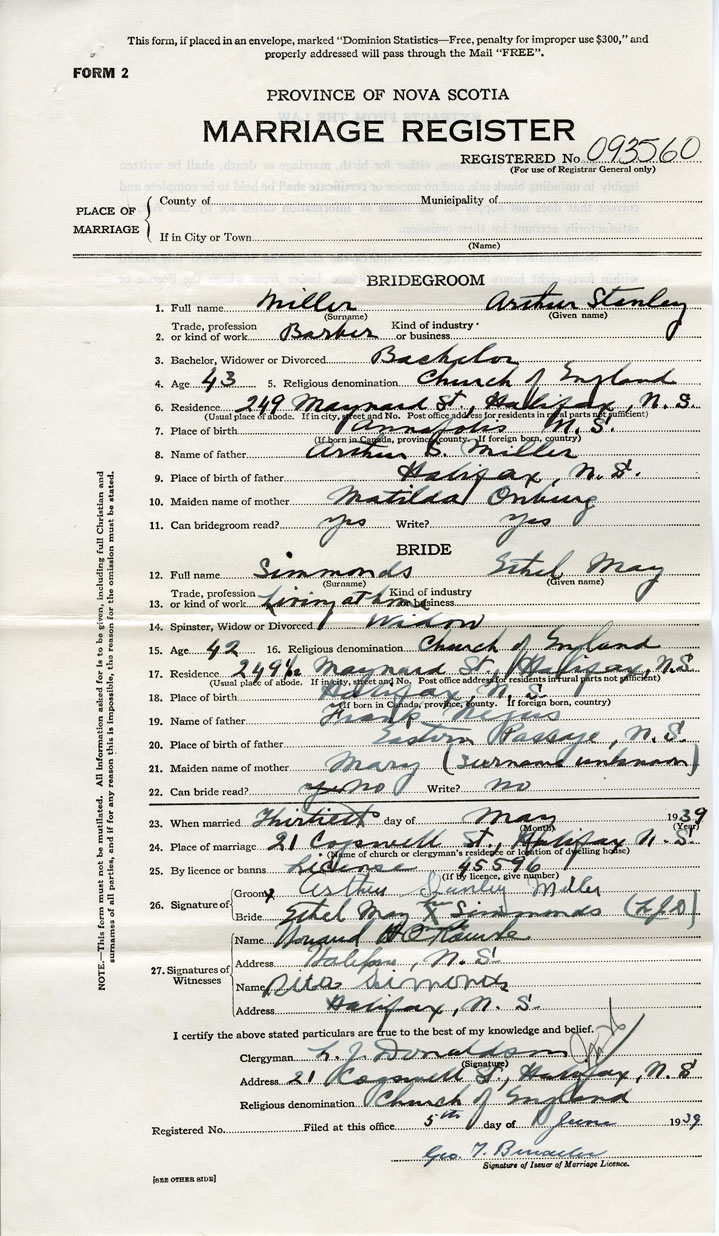 This form, if placed in an envelope, marked "Dominion Statistics—Free, penalty for improper use $300," and
properly addressed will pass through the Mail "FREE".
FORM 2
PROVINCE OF NOVA SCOTIA
MARRIAGE REGISTER
REGISTERED No. 093560
(For use of Registrar General only)
PLACE OF MARRIAGE
County of Municipality of
If in City or Town
(Name)
BRIDEGROOM
1. Full name Miller Arthur Stanley
(Surname) (Given name)
2. Trade, profession or kind of work Barber Kind of industry or business
3. Bachelor, Widower or Divorced Bachelor
4. Age 43 5. Religious denomination Church of England
6. Residence 249 Maynard St., Halifax, N.S.
(Usual place of abode. If in city, street and No. Post office address for residents in rural parts not sufficient)
7. Place of birth Annapolis N.S.
(If born in Canada, province, county. If foreign born, country)
8. Name of father Arthur S. Miller
9. Place of birth of father Halifax, N.S.
10. Maiden name of mother Matilda
11. Can bridegroom read? yes Write? yes
BRIDE
12. Full name Simmonds Ethel May
(Surname) (Given name)
13. Trade, profession or kind of work Living at home Kind of industry or business
14. Spinster, Widow or Divorced Widow
15. Age 42 16. Religious denomination Church of England
17. Residence 249½ Maynard St., Halifax, N.S.
(Usual place of abode. If in city, street and No. Post office address for residents in rural parts not sufficient)
18. Place of birth Halifax, N.S.
(If born in Canada, province, county. If foreign born, country)
19. Name of father Frank
20. Place of birth of father Eastern Passage, N.S.
21. Maiden name of mother Mary (surname unknown)
22. Can bride read? yes No Write? no
23. When married Thirtieth day of May 1939
(Month) (Year)
24. Place of marriage 21 Cogswell St., Halifax N.S.
(Name of church or clergyman's residence or location of dwelling house)
25. By licence or banns License 45596
(If by licence, give number)
26. Signature of
Groom Arthur Stanley Miller
Bride Ethel May X Simmonds (LJD)
27. Signatures of Witnesses
Name Howard
Address Halifax, N.S.
Name Simonds
Address Halifax, N.S.
I certify the above stated particulars are true to the best of my knowledge and belief.
Clergyman L. J. Donaldson
(Signature)
Address 21 Cogswell St., Halifax, N.S
Religious denomination Church of England
Registered No. Filed at this office 5th day of June 1939
Geo. T.
Signature of Issuer of Marriage Licence.
[SEE OTHER SIDE]
NOTE.—This form must not be mutilated. All information asked for is to be given, including full Christian and
surnames of all parties, and if for any reason this is impossible, the reason for the omission must be stated.